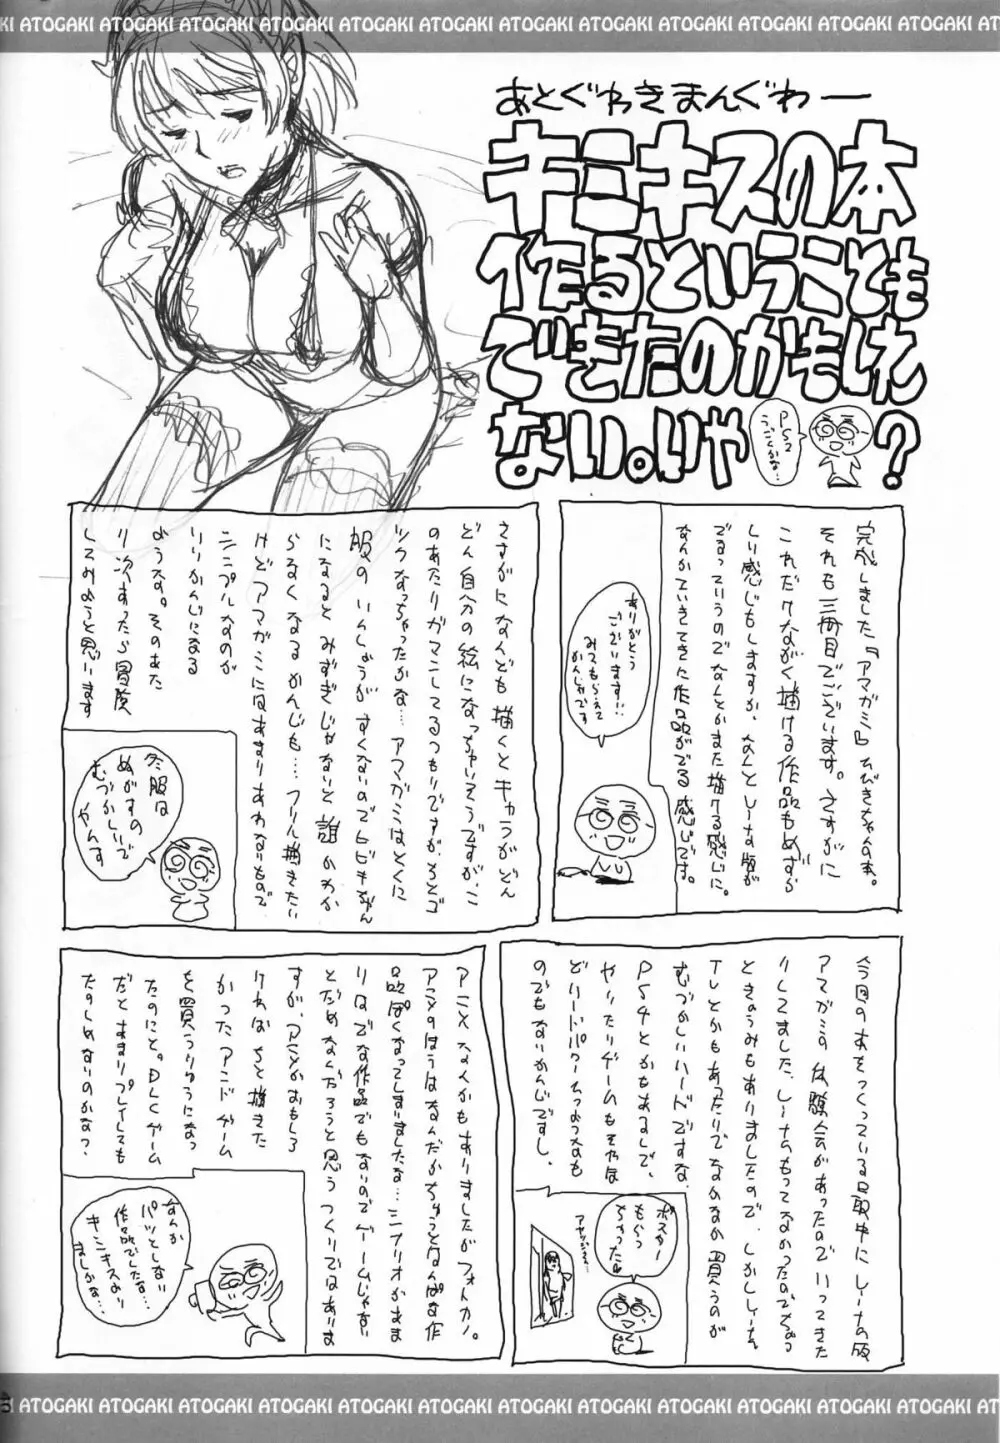 ATOGAKI ATOGAKI ATOGAKI ATOGAKI ATOGAKI ATOGAKI ATOGAKI ATOGAKI ATOGAKI ATOGAKI
あとぐわきまんぐわー
キミキスの本
作るということも
できたのかもしれ
ない。いや
PS2
うごくかな…
?
完成しました『アマガミ』ひびきちゃん本。
それも三冊目でございます。さすがに
これだけながく描ける作品もめずら
しい感じもしますが、なんとレーナ版が
でるっていうのでなんとかまた描ける感じに。
なんかていきてきた作品がでる感じです。
ありがとう
ございます!!
みてもらえて
かんしゃです
さすがになんども描くとキャラがどん
どん自分の絵になっちゃいそうですが、こ
のあたりガマンしてるつもりですが、ろとゴ
ツクなっちゃったかな…アマガミはとくに
服のいしょうがすくないのでヒビキちゃん
になるとみずぎじゃないと誰かわか
らなくなるかんじも…フリル描きたい
けどアマガミにはあまりあわないもので
シンプルなのが
いいかんじになる
ような。そのあた
り次あったら冒険
してみようと思います
冬服は
ぬがすの
むづかしいで
やんす
今回の本をつくっている最中にレーナの版
アマガミの体験会があったのでいってきた
りしてました、レーナもってなかったのでちょっ
ときょうみもありましたので、しかしレーナ
TLとかもあったりでなかなか買うのが
むづかしいハードですな。
PS4とかもあるしで、
やったりゲームもそれほ
どハードパワーつかうもの
のでもないかんじですし、
ポスター
もらっ
ちゃったの
アニメなんかもありましたがフォトカノ。
アニメのほうはなんだかちょっとなんぱな作
品ぽくなってしまいましたな…シナリオがあま
りはでな作品でもないのでゲームじゃない
とだめなんだろうと思うつくりではありま
すが、アニメがおもしろ
ければちと描きた
かったアンドゲーム
を買うりゆうになっ
たのにと。DLCゲーム
だとあまりプレイしても
たのしめないのかな?
なんか
パッとしない
作品でしたな…
キミキスより
ましかな…
ATOGAKI ATOGAKI ATOGAKI ATOGAKI ATOGAKI ATOGAKI ATOGAKI ATOGAKI ATOGAKI ATOGAKI